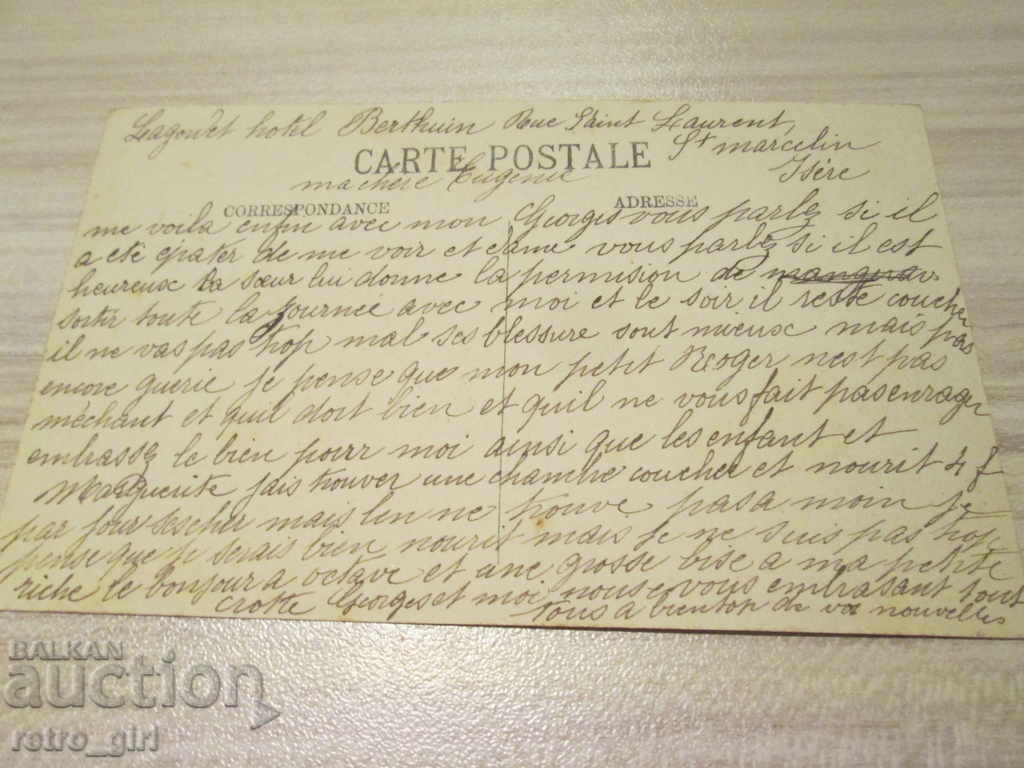 Lagoudet hotel Berthuin Rue Saint Laurent,
CARTE POSTALE
St marcelin
Isère
ma chère Eugenie
CORRESPONDANCE
ADRESSE
me voila enfin avec mon Georges vous parlez si il
a etè épater de me voir et vous parlez si il est
heureux la sœur lui donne la permision de
sortir toute la journeé avec moi et le soir il reste coucher
il ne vas pas trop mal ses blessure sont mieux mais pas
encore guerie je pense que mon petit Roger n'est pas
mechant et quil dort bien et quil ne vous fait pas enrager
embrassez le bien pour moi ainsi que les enfant et
Marguerite jais trouver une chambre coucher et nourit 4 f
par jour sescher mais l'en ne trouve pas a moin je
pense que je serais bien nourit mais je ne suis pas trop
riche le bonjour a octave et une grosse bise a ma petite
crotte Georges et moi nous vous embrasant tout
tous a bientot de vos nouvelles
BALKAN
auction
retro_girl